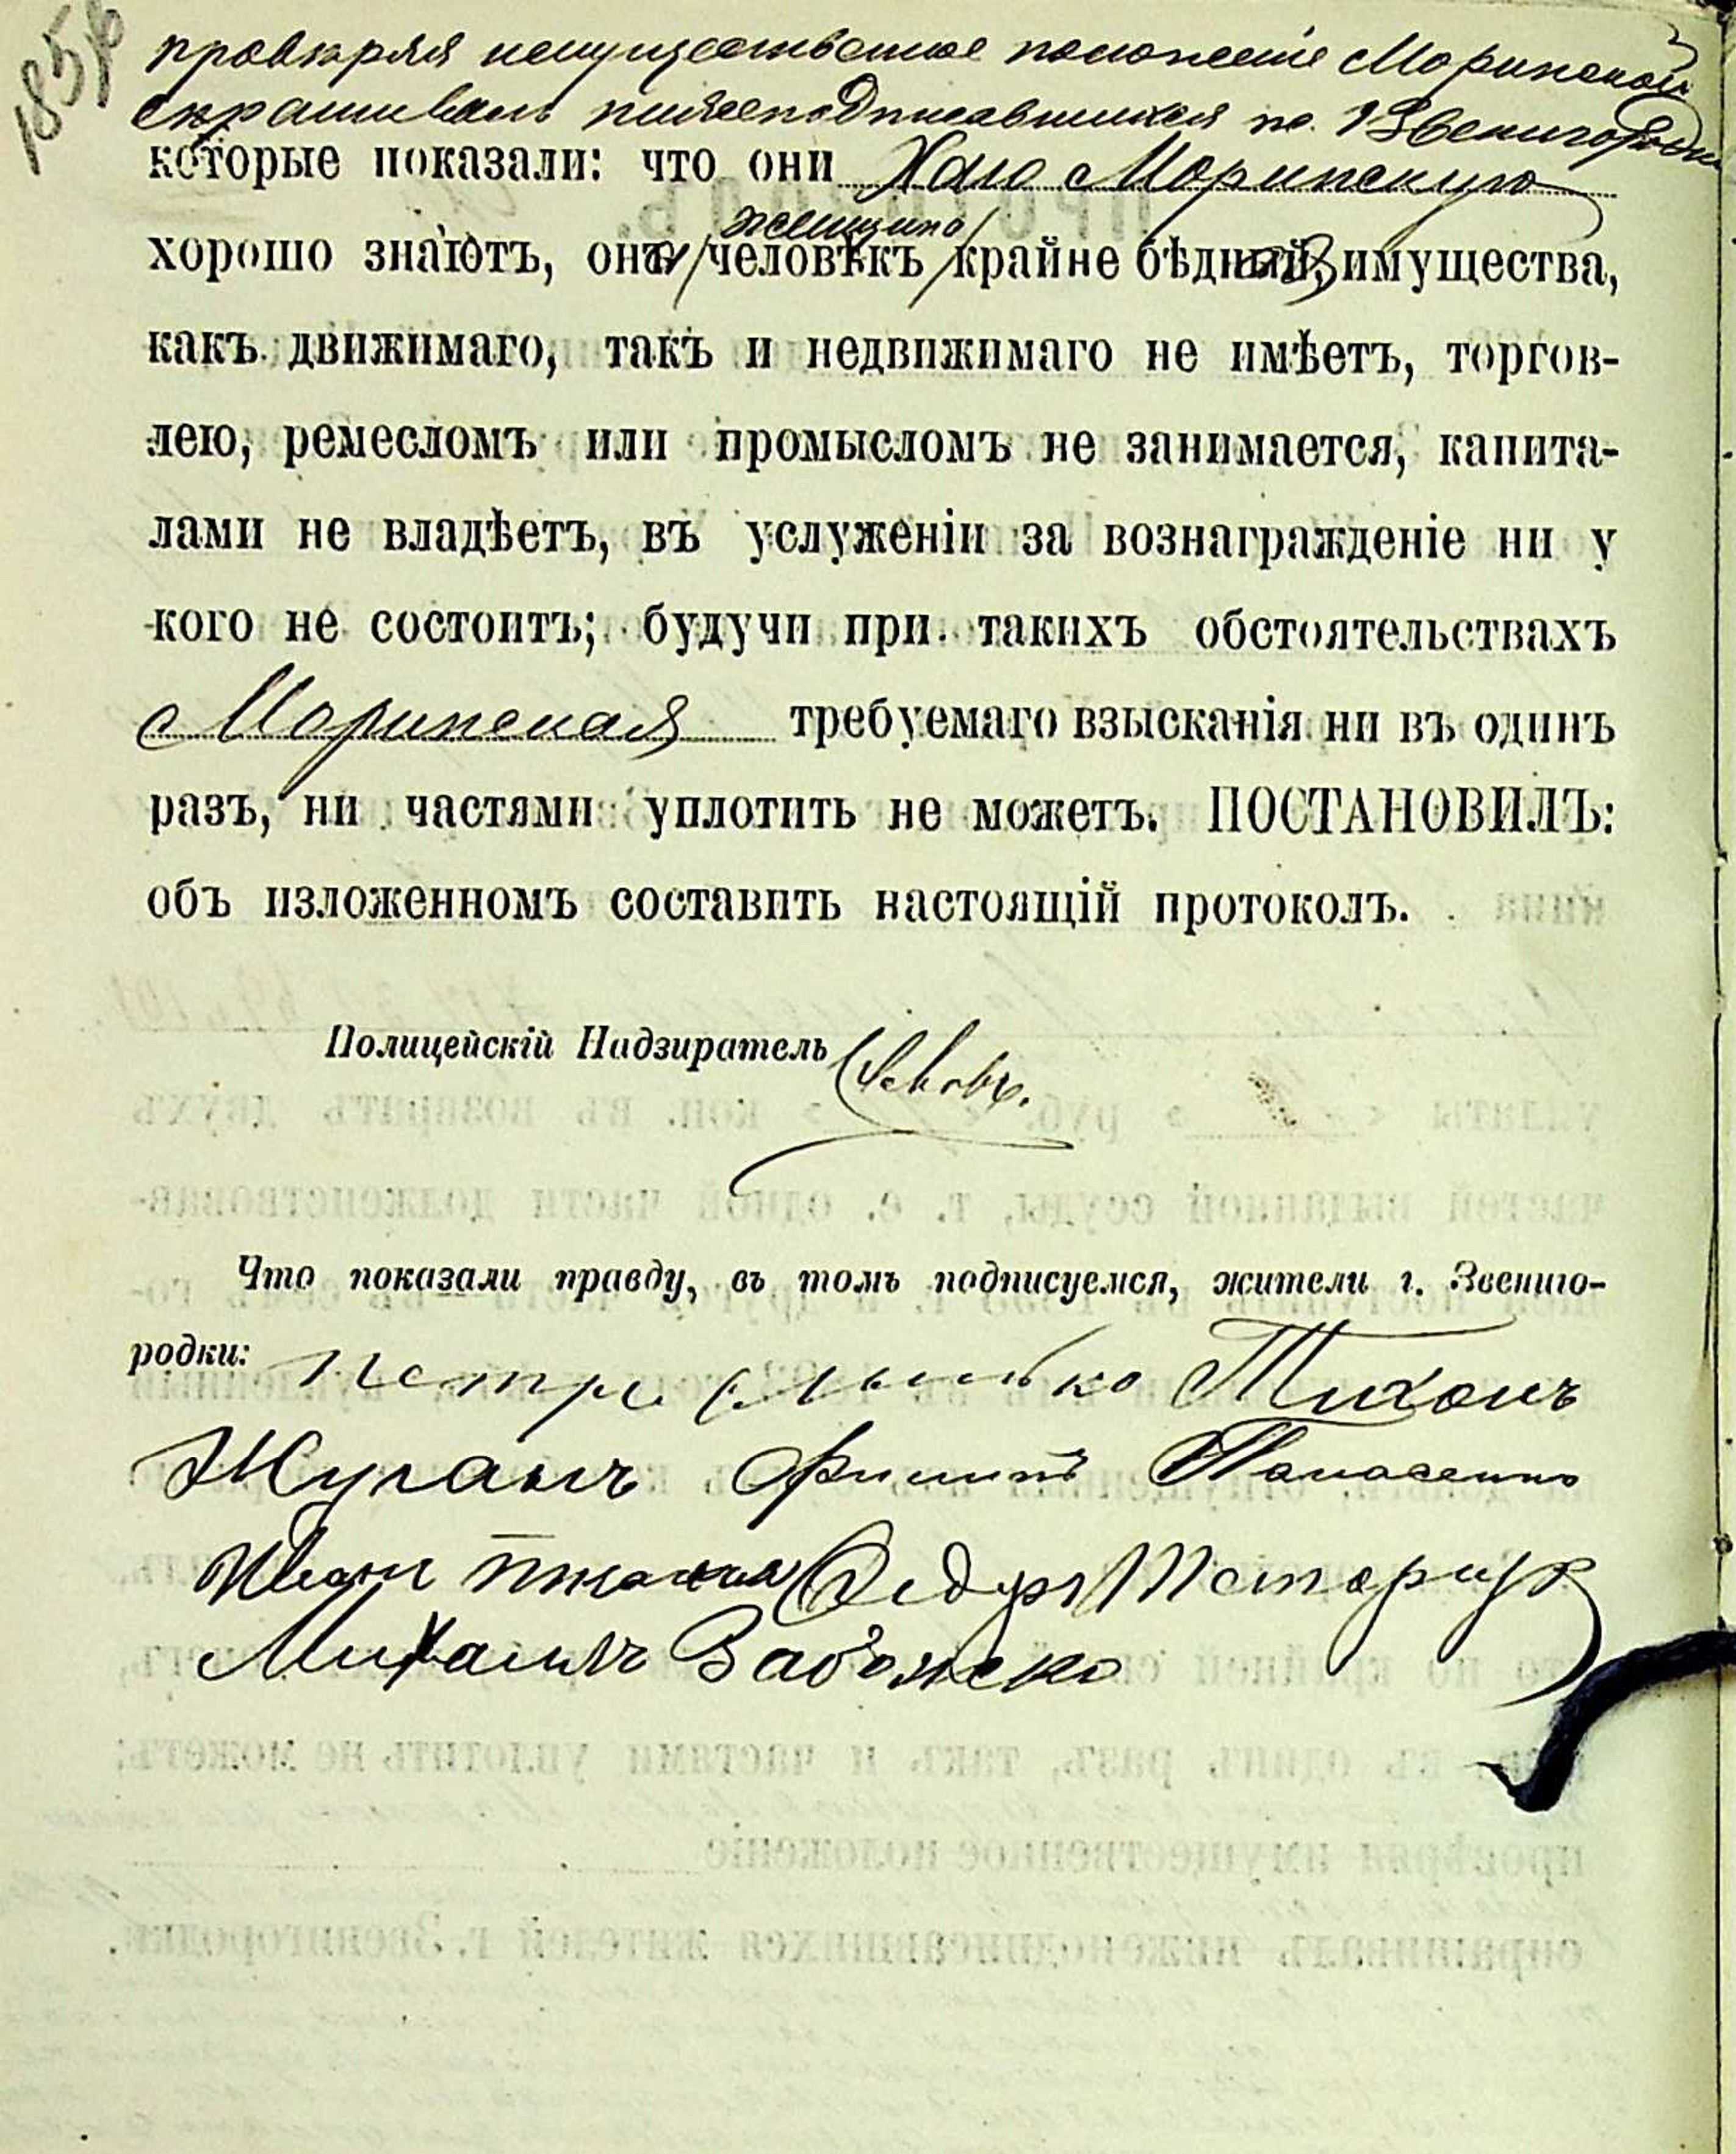 провѣряя имущественное положеніе Моринской
спрашивалъ нижеподписавшихся г. Звенигородки
которые показали: что они Хаю Моринскую
женщина
хорошо знаютъ, онъ человѣкъ крайне бѣдный, имущества,
какъ движимаго, такъ и недвижимаго не имѣетъ, торгов-
лею, ремесломъ или промысломъ не занимается, капита-
лами не владѣетъ, въ услуженіи за вознагражденіе ни у
кого не состоитъ; будучи при такихъ обстоятельствахъ
Моринская требуемаго взысканія ни въ одинъ
разъ, ни частями уплотить не можетъ. ПОСТАНОВИЛЪ:
объ изложенномъ составить настоящій протоколъ.
Полицейскій Надзиратель
Что показали правду, въ томъ подписуемся, жители г. Звениго-
родки: Петро Тихонъ
Жуганъ Филипъ Панасенко
Иванъ Федоръ
Михаилъ Забожко